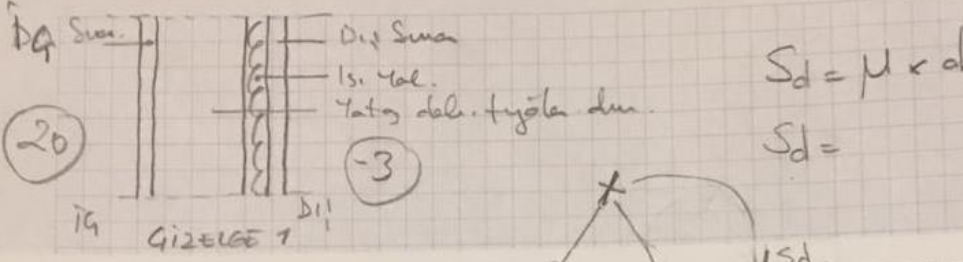 İç Sıva.
Dış Sıvası
Isı Yal.
Yatay del. tuğla duv.
20
-3
İÇ
DIŞ
ÇİZELGE 1
Sd = μ x d
Sd =
μSd